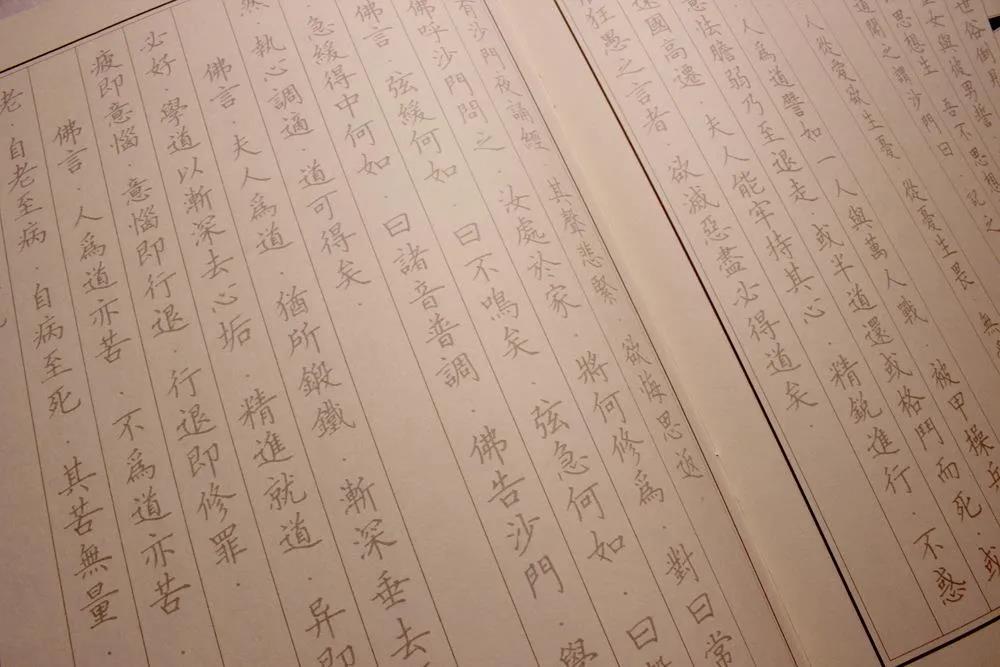 世俗倒
女與彼男誓．吾不思想
思想生
道聞之．謂沙門曰．記之
人從愛欲生憂．從憂生畏．無
人為道譬如一人與萬人戰．被甲操兵
意怯膽弱乃至退走．或半道還或格鬥而死．或
遠國高遷．夫人能牢持其心．精銳進行．不惑
狂愚之言者．欲滅惡盡必得道矣
有沙門夜誦經．其聲悲緊．欲悔思返
佛呼沙門問之．汝處於家．將何修為．對曰常
佛言．弦緩何如．曰不鳴矣．弦急何如．曰
急緩得中何如．曰諸音普調．佛告沙門．學
執心調適．道可得矣．
佛言．夫人為道．猶所鍛鐵．漸深垂去
必好．學道以漸深去心垢．精進就道．异即
疲即意惱．意惱即行退．行退即修罪．
佛言．人為道亦苦．不為道亦苦
老．自老至病．自病至死．其苦無量